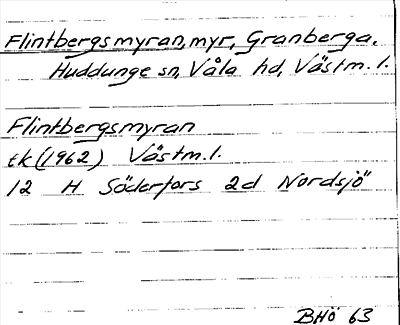 Flintbergsmyran, myr, Granberga.
Huddunge sn, Våla hd, Västm. l.
Flintbergsmyran
tk (1962) Västm. l.
12 H Söderfors 2d Nordsjö
BHö 63